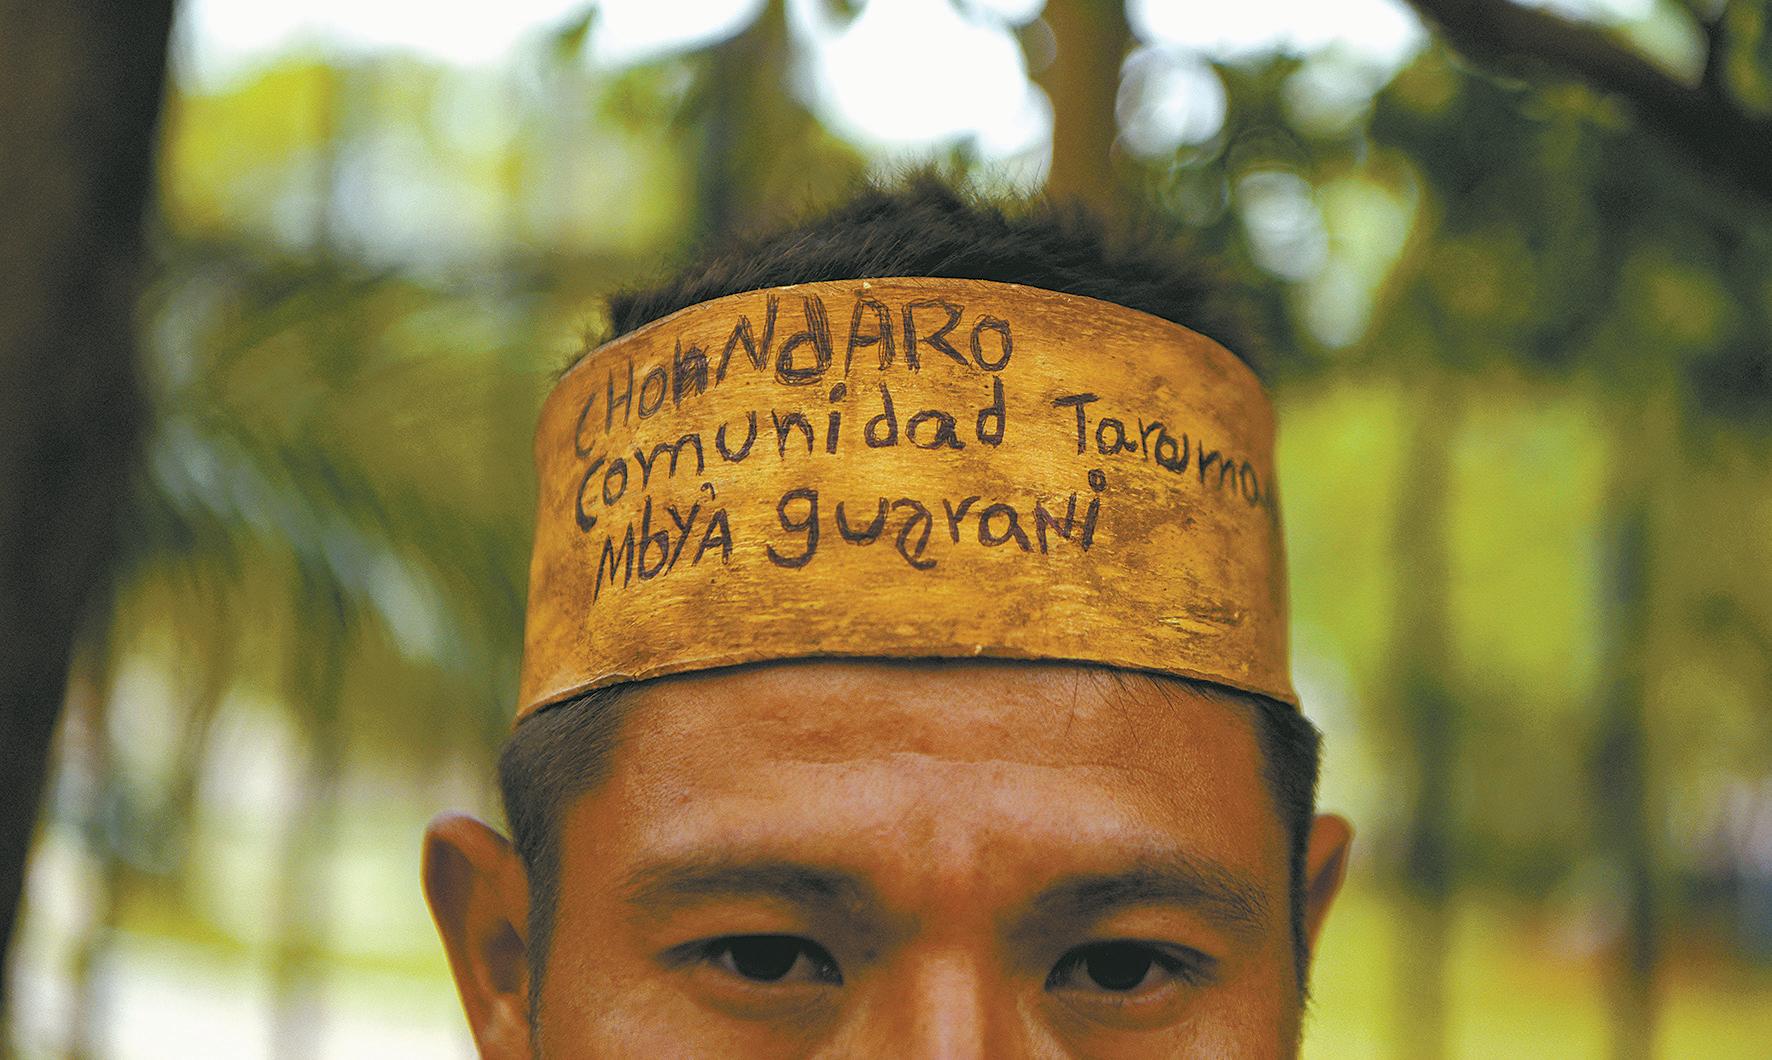 CHONDARO
Comunidad Tarama
Mbyà guarani